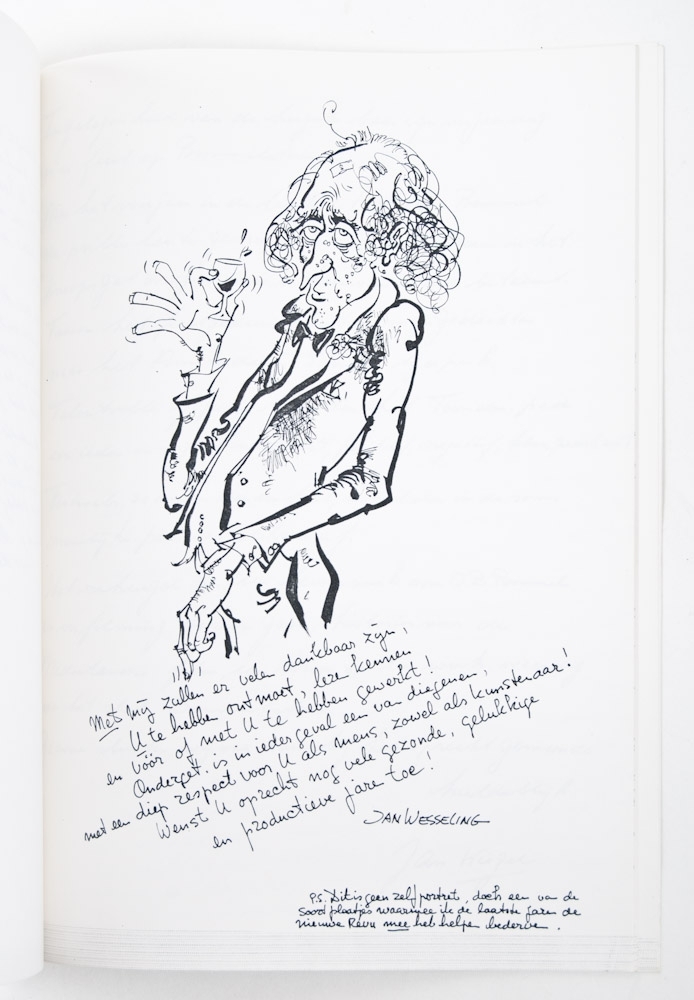 Met mij zullen er velen dankbaar zijn,
U te hebben ontmoet, leren kennen
en vóór of met U te hebben gewerkt!
Onderget. is in ieder geval een van diegenen,
met een diep respect voor U als mens, zowel als kunstenaar!
Wenst U oprecht nog vele gezonde, gelukkige
en productieve jare toe!
JAN WESSELING
P.S. Dit is geen zelfportret, doch een van de
soort plaatjes waarmee ik de laatste jaren de
nieuwe Revu mee heb helpen bederve.